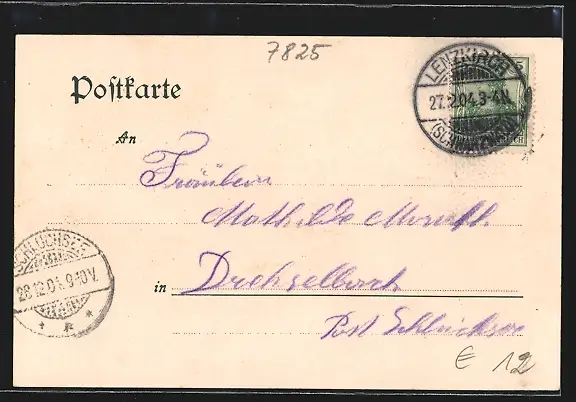 7825
Postkarte
LENZKIRCH
27.12.04.3-4N.
(SCHWARZWALD)
An
Fräulein
Mathilde
SCHLUCHSEE
28.12.04.9-10V.
in
Post Schluchsee
€ 12